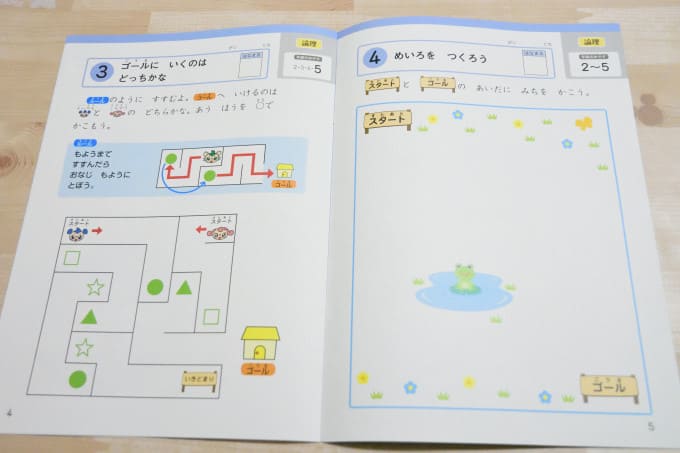 論理
3
ゴールに いくのは
どっちかな
5
ルールのように すすむよ。ゴールへ いけるのは
と の どちらかな。あう ほうを ○で
かこもう。
ルール
もようまで
すすんだら
おなじ もように
とぼう。
ゴール
スタート
スタート
ゴール
いきどまり
4
論理
4
めいろを つくろう
2〜5
スタート と ゴール の あいだに みちを かこう。
スタート
ゴール
5